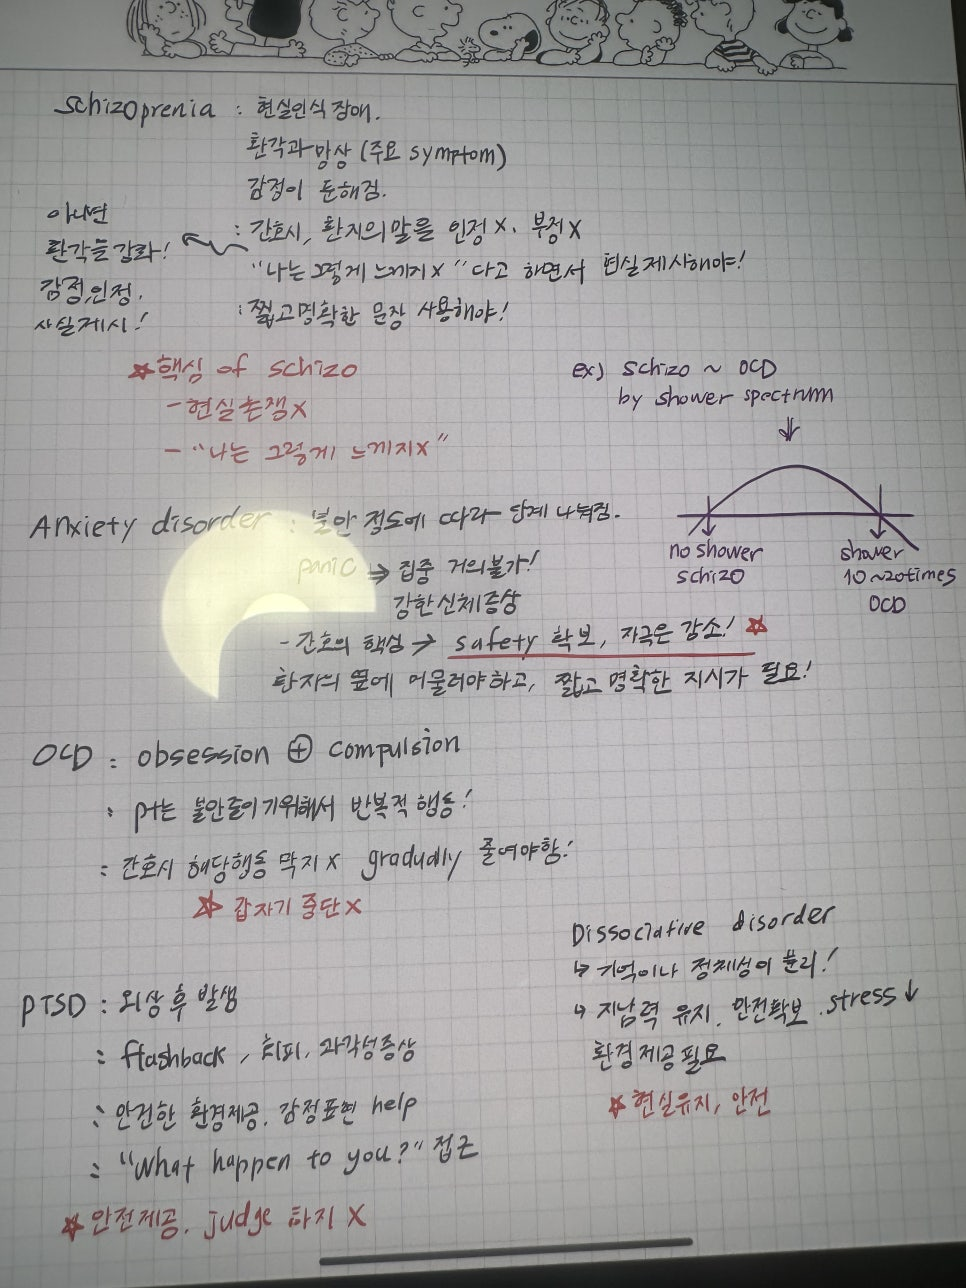 schizoprenia : 현실인식 장애.
환각과 망상 (주요 symptom)
감정이 둔해짐.
: 간호시, 환자의 말을 인정 X. 부정 X
"나는 그렇게 느끼지 X" 라고 하면서 현실 제시해야!
: 짧고 명확한 문장 사용해야!
아니면
환각을 강화!
감정,인정.
사실제시!
☆핵심 of schizo
- 현실논쟁X
- "나는 그렇게 느끼지X"
ex) schizo ~ OCD
by shower spectrum
no shower
schizo
shower
10~20times
OCD
Anxiety disorder : 불안 정도에 따라 단계 나눠짐.
panic ⇒ 집중 거의불가!
강한신체증상
- 간호의 핵심 → safety 확보, 자극은 감소! ☆
환자의 옆에 머물러야하고, 짧고 명확한 지시가 필요!
OCD : obsession ⊕ compulsion
: pt는 불안줄이기위해서 반복적 행동!
: 간호시 해당행동 막지 X gradually 줄여야함!
☆ 갑자기 중단 X
PTSD : 외상 후 발생
: flashback , 회피, 과각성증상
: 안전한 환경제공. 감정표현 help
: "What happen to you?" 접근
☆ 안전제공. judge 하지 X
Dissociative disorder
↳ 기억이나 정체성이 분리!
↳ 지남력 유지. 안전확보. stress↓
환경제공필요
☆ 현실유지, 안전